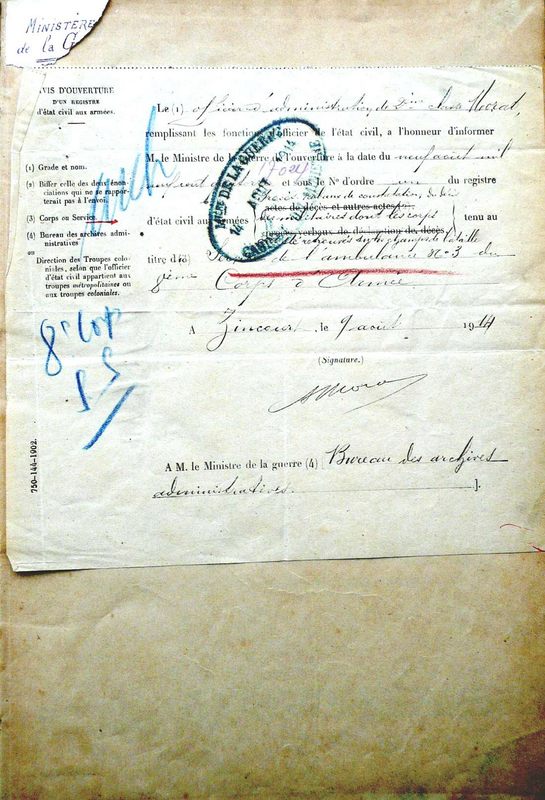 MINISTÈRE
de la G
AVIS D'OUVERTURE
D'UN REGISTRE
d'état civil aux armées.
(1) Grade et nom.
(2) Biffer celle des deux énon-
ciations qui ne se rappor-
terait pas à l'envoi.
(3) Corps ou Service.
(4) Bureau des archives admi-
nistratives
ou
Direction des Troupes colo-
niales, selon que l'officier
d'état civil appartient aux
troupes métropolitaines ou
aux troupes coloniales.
8e Corp
750-144-1902.
Le (1) officier d'administration de 2me classe Morat,
remplissant les fonctions d'officier de l'état civil, a l'honneur d'informer
M. le Ministre de la guerre de l'ouverture à la date du neuf août mil
neuf cent et sous le No d'ordre un du registre
actes de décès et autres actes
d'état civil aux armées des militaires dont les corps tenu au
procès-verbaux de déclaration de décès
retrouvés sur les champs de bataille
titre d de l'ambulance No 3 du
8ème Corps d'Armée
A Zincourt, le 9 août 1914
(Signature.)
A M. le Ministre de la guerre (4) [Bureau des archives
administratives ].
Mtère DE LA GUERRE
14 AOUT 1914